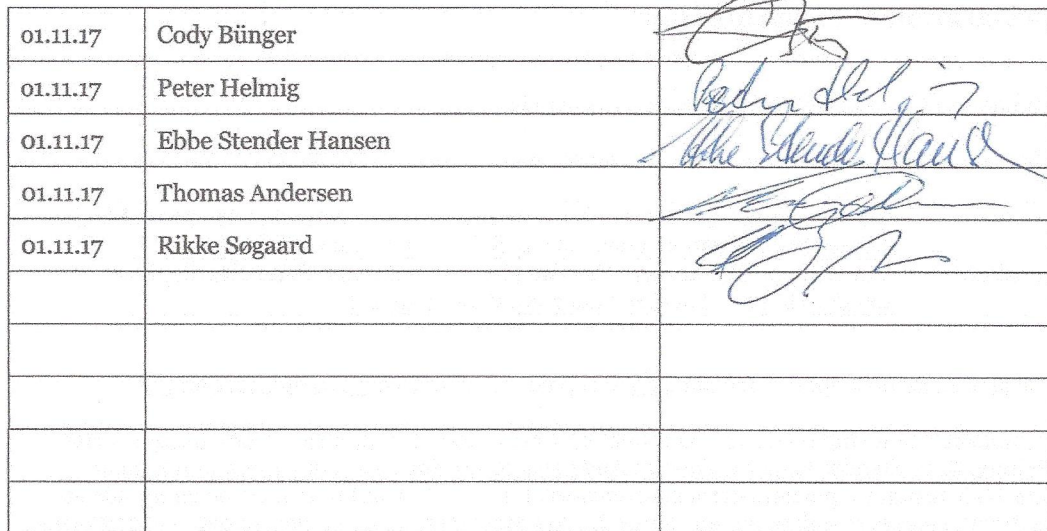 01.11.17 Cody Bünger
01.11.17 Peter Helmig
01.11.17 Ebbe Stender Hansen Ebbe Stender Hansen
01.11.17 Thomas Andersen
01.11.17 Rikke Søgaard